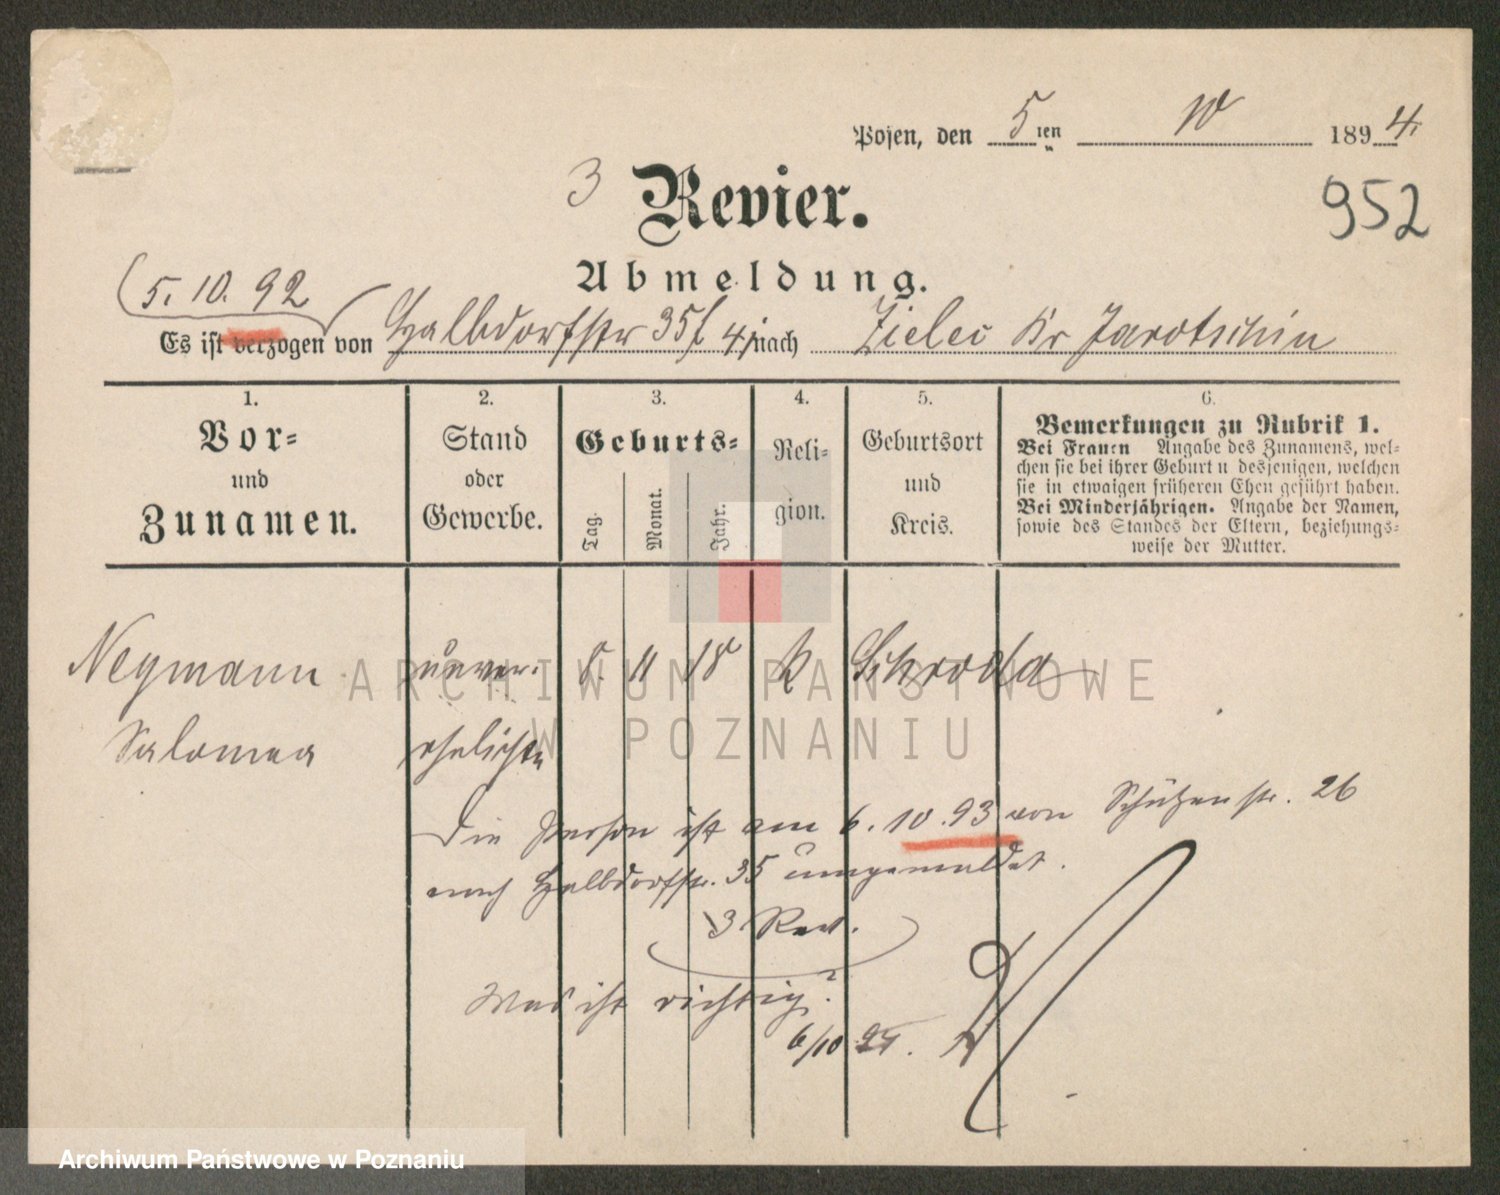 Posen, den 5ten 10 1894.
3 Revier.
952
Abmeldung.
5. 10. 92
Es ist verzogen von Halbdorfstr 35 nach Zielec Kr Jarotschin
1. 2. 3. 4. 5. 6.
Vor- und Zunamen.
Stand oder Gewerbe.
Geburts-
Tag. Monat. Jahr.
Reli-
gion.
Geburtsort und Kreis.
Bemerkungen zu Rubrik 1.
Bei Frauen Angabe des Zunamens, wel-
chen sie bei ihrer Geburt u desjenigen, welchen
sie in etwaigen früheren Ehen geführt haben.
Bei Minderjährigen. Angabe der Namen,
sowie des Standes der Eltern, beziehungs-
weise der Mutter.
Neymann unver. 11 K Schroda
Salomea ehelichte
ARCHIWUM PAŃSTWOWE
W POZNANIU
Die Person ist am 6. 10. 93 von Schützenstr. 26
nach Halbdorfstr. 35 umgemeldet.
3 Rev.
Was ist richtig?
6/10
Archiwum Państwowe w Poznaniu